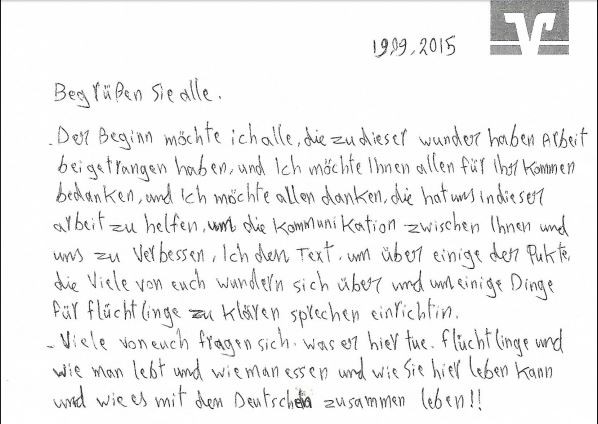 1999,2015
Begrüßen Sie alle.
- Der Beginn möchte ich alle, die zu dieser wunder haben Arbeit
beigetrangen haben, und Ich möchte Ihnen allen für Ihr Kommen
bedanken, und Ich möchte allen danken, die hat uns in dieser
arbeit zu helfen, um die Kommunikation zwischen Ihnen und
uns zu Verbessen, Ich den Text, um über einige der Pukte,
die Viele von euch wundern sich über und um einige Dinge
für flüchtlinge zu klären sprechen einrichtin.
- Viele von euch fragen sich. was er hier tue. flüchtlinge und
wie man lebt und wie man essen und wie Sie hier leben Kann
und wie es mit den Deutschen zusammen leben!!